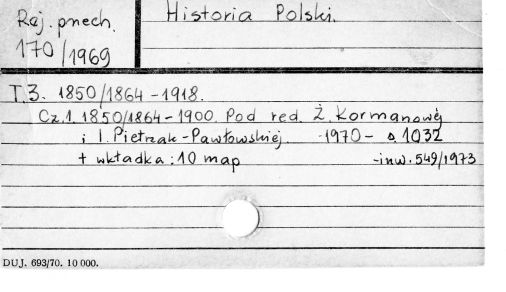 Historia Polski.
Raj. pnech.
170/1969
T.3. 1850/1864-1918.
Cz.1. 1850/1864-1900. Pod red. Ż. Kormanowej
i I. Pietrzak-Pawłowskiej. 1970- s. 1032
+ wkładka: 10 map -inw. 549/1973
DUJ. 693/70. 10 000.